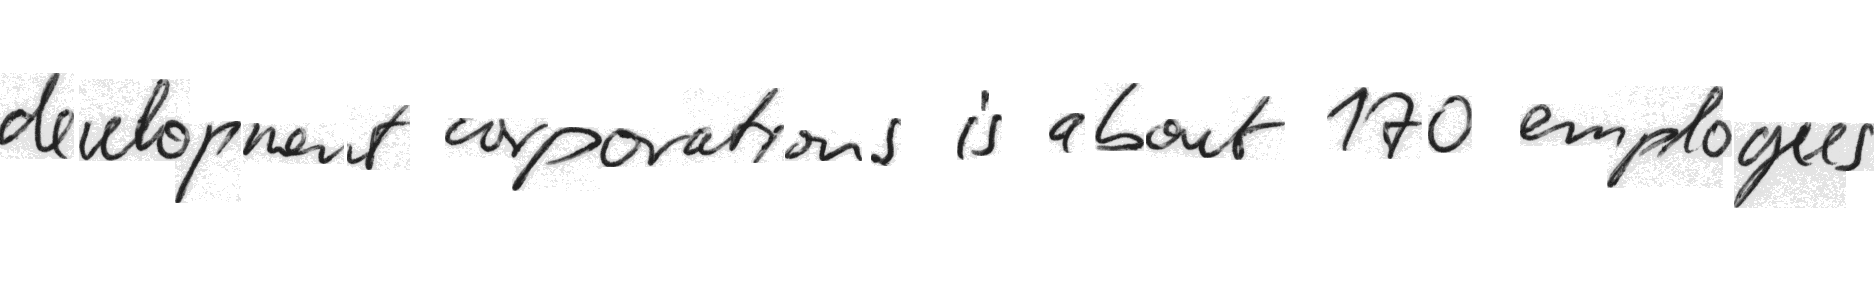 development corporations is about 170 employees